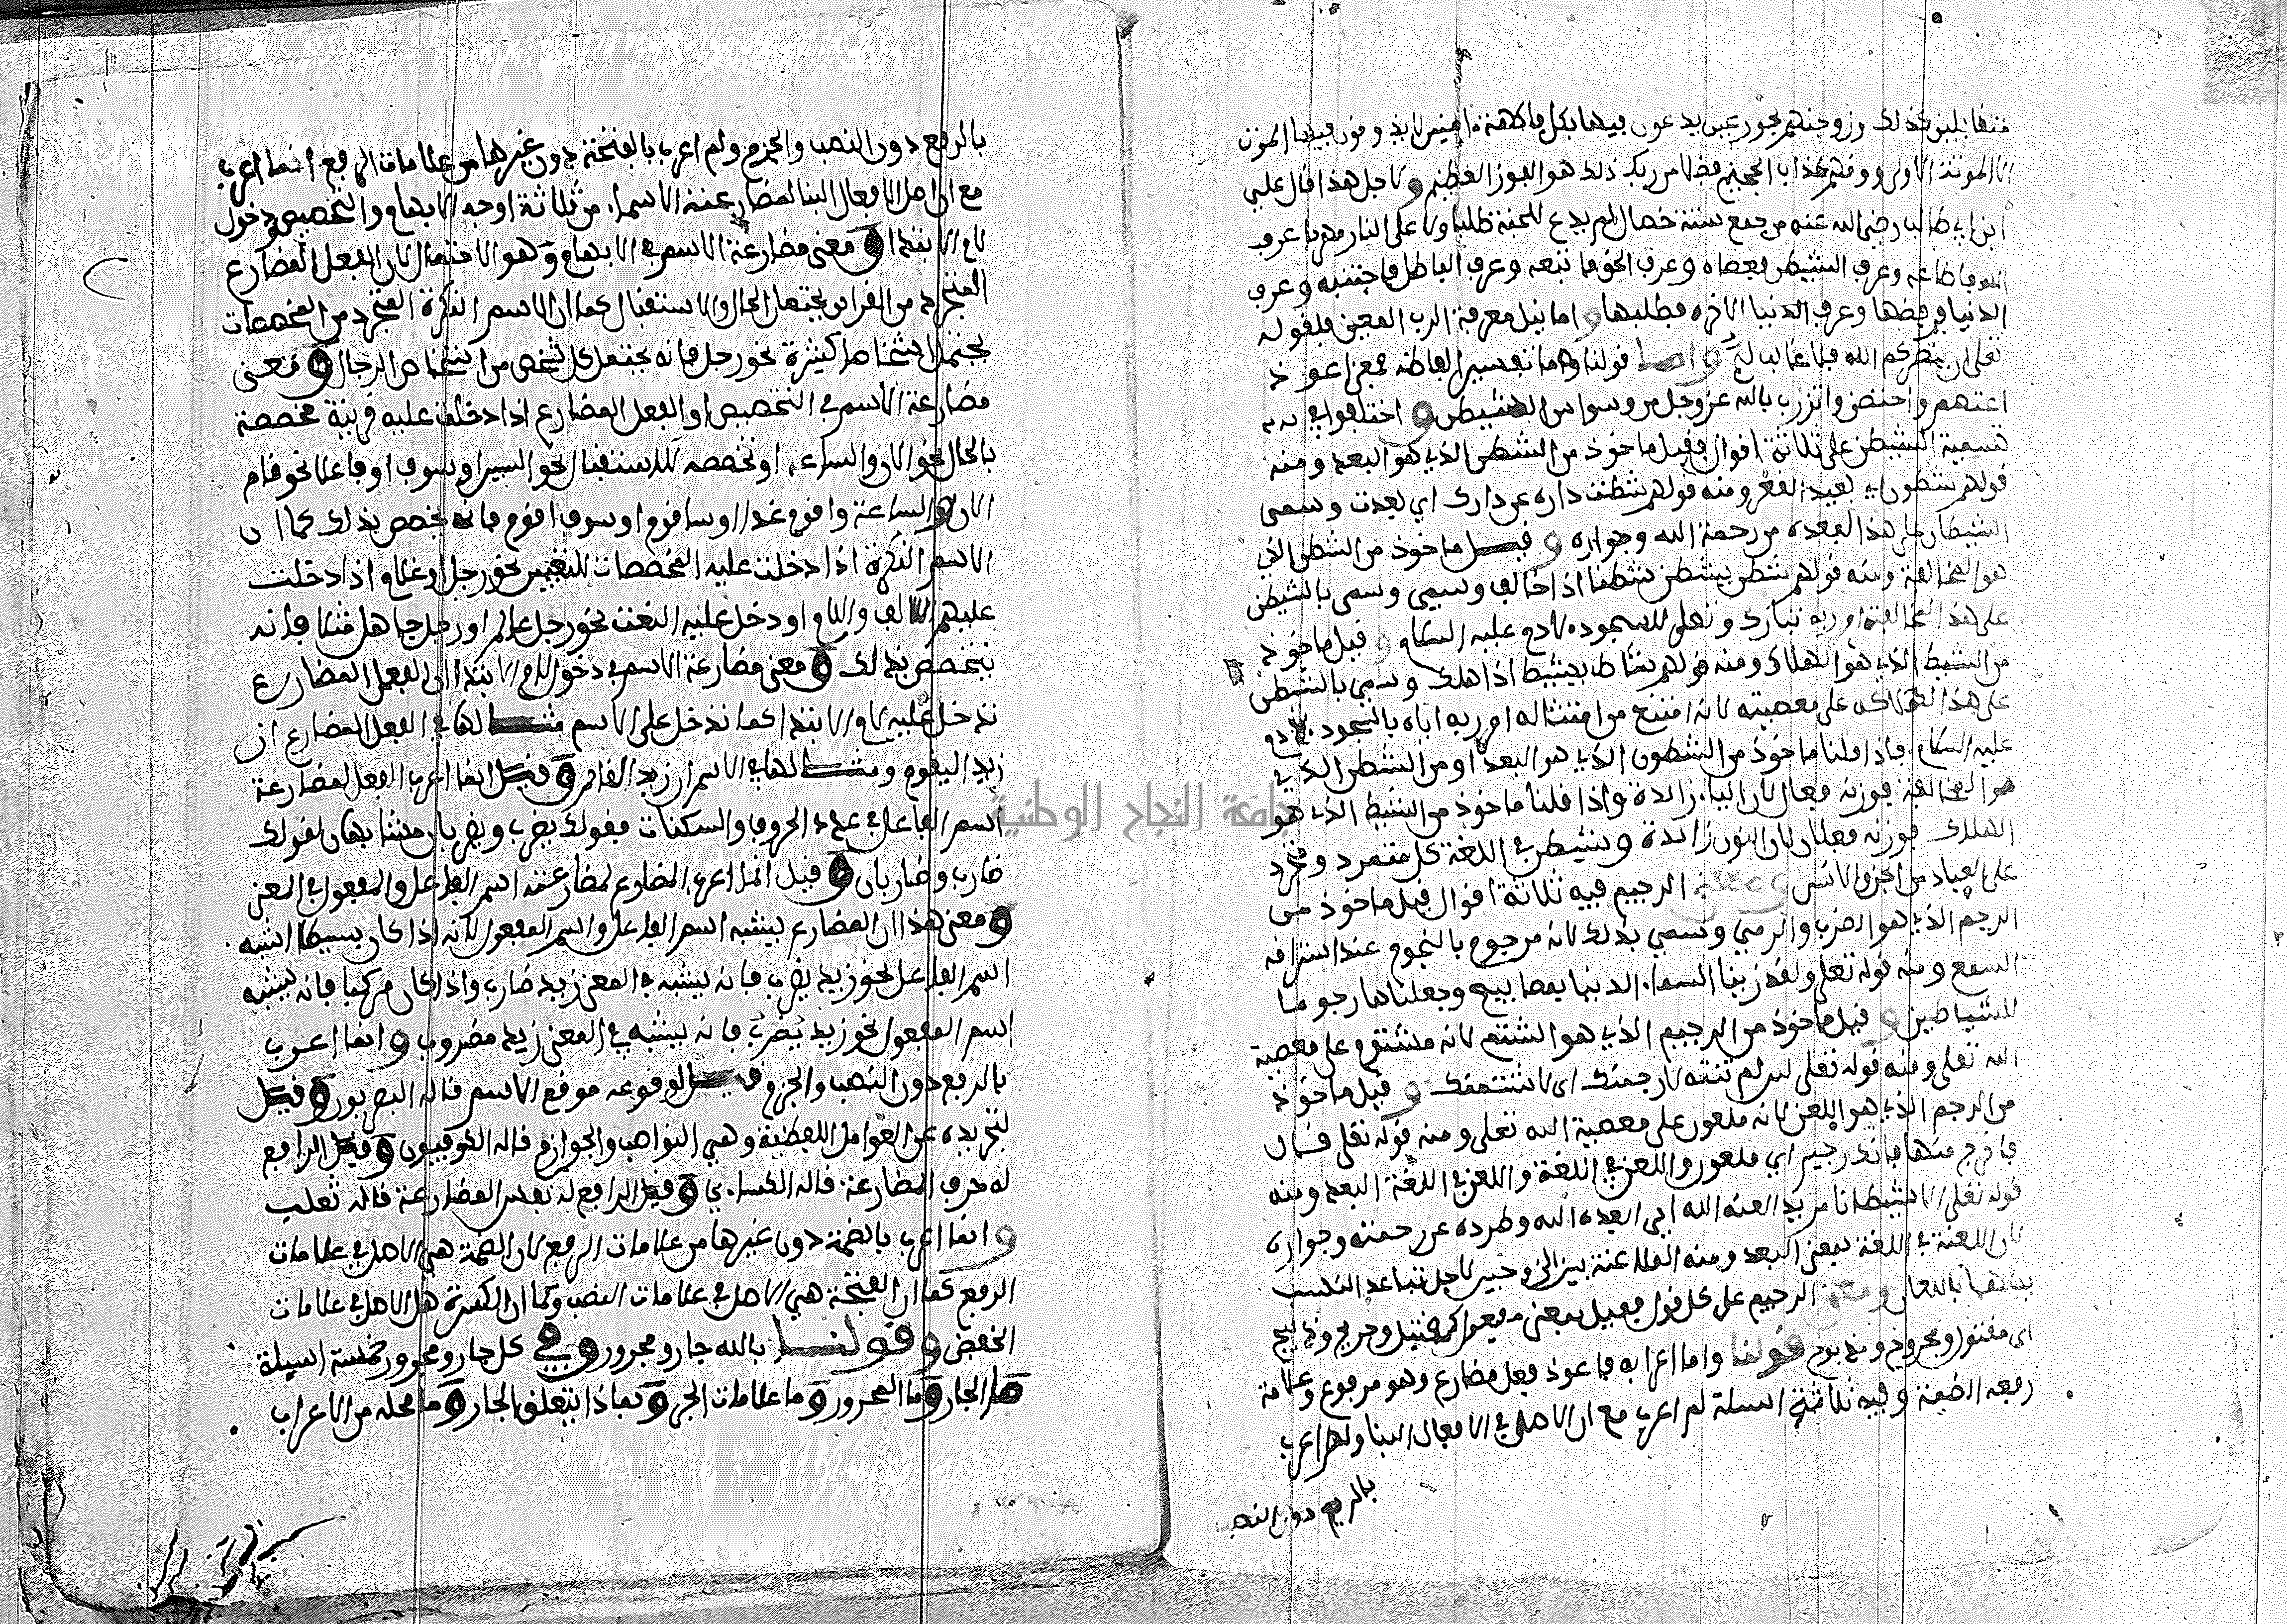 متقابلين كذلك وزوجنهم بحور عين يدعون فيها بكل فاكهة امنين لا يذوقون فيها الموت
الا الموتة الاولى ووقهم عذاب الجحيم فضلا من ربك ذلك هو الفوز العظيم ولاجل هذا قال علي
ابن ابي طالب رضي الله عنه من جمع ستة خصال لم يدع للجنة طلبا ولا على النار مهربا عرف
الله فاطاعه وعرف الشيطن فعصاه وعرف الحق فاتبعه وعرف الباطل فاجتنبه وعرف
الدنيا فرفضها وعرف الاخره فطلبها واما نيل معرفة الرب المعين فلقوله
تعلى ان ينصركم الله فلا غالب لكم واما قولنا وما تفسير الفاظه فمعنى اعوذ
اعتصم واحتفظ بالله عز وجل من وسواس الشيطن واختلفوا في
تسمية الشيطن على ثلاثة اقوال فقيل ماخوذ من الشطن الذي هو البعد ومنه
قولهم شطون اي بعيد القعر ومنه قولهم شطنت داره عن دارك اي بعدت وسمي
الشيطان على هذا لبعده من رحمة الله وجواره وقيل ماخوذ من الشطن الذي
هو المخالفة ومنه قولهم شطن يشطن شطنا اذا خالف وسمي بالشيطن
على هذا لمخالفته امر ربه تبارك وتعلى للسجود لادم عليه السلام وقيل ماخوذ
من الشيط الذي هو الهلاك ومنه قولهم شاط يشيط اذا هلك وسمي بالشيطن
على هذا لهلاكه على معصيته لانه امتنع من امتثاله امر ربه اياه بالسجود لادم
عليه السلام فاذا قلنا ماخوذ من الشطون الذي هو البعد او من الشطن الذي
هو المخالفة فوزنه فيعال لان الياء زائدة واذا قلنا ماخوذ من الشيط الذي هو
الهلاك فوزنه فعلان لان النون زائدة والشيطن في اللغة كل متمرد
على العباد من الجن والانس ومعنى الرجيم فيه ثلاثة اقوال قيل ماخوذ من
الرجم الذي هو الضرب والرمي وسمي بذلك لانه مرجوم بالنجوم عند استراقه
السمع ومنه قوله تعلى ولقد زينا السماء الدنيا بمصابيح وجعلناها رجوما
للشياطين وقيل ماخوذ من الرجيم الذي هو الشتم لانه مشتوم على معصية
الله تعلى ومنه قوله تعلى لين لم تنته لارجمنك اي لاشتمنك وقيل ماخوذ
من الرجم الذي هو اللعن لانه ملعون على معصية الله تعلى ومنه قوله تعلى قال
فاخرج منها فانك رجيم اي ملعون واللعن في اللغة البعد ومنه
قوله تعلى الا شيطانا مريدا لعنه الله اي ابعده الله وطرده عن رحمته وجواره
لان اللعنة في اللغة بمعنى البعد ومنه الملاعنة بين الزوجين لاجل تباعد
بينهما باللعان ومعنى الرجيم على كل قول فعيل بمعنى مفعول كقتيل وجريح وذبيح
اي مقتول ومجروح ومذبوح قولنا واما اعرابه فاعوذ فعل مضارع وهو مرفوع وعلامة
رفعه الضمة وفيه ثلاثة اسيلة لم اعرب مع ان الاصل في الافعال البنا ولم اعرب
بالرفع دون النصب
بالرفع دون النصب والجزم ولم اعرب بالضمة دون غيرها من علامات الرفع انما اعرب
مع ان اصل الافعال البنا لمضارعته الاسماء من ثلاثة اوجه الابهام والتخصيص ودخول
لام الابتدا ومعنى مضارعة الاسم في الابهام وهو الاحتمال لان الفعل المضارع
المتجرد من القراين يحتمل الحال والاستقبال كما ان الاسم النكرة المتجرد من المخصصات
يحتمل اشخاصا كثيرة نحو رجل فانه يحتمل كل شخص من اشخاص الرجال ومعنى
مضارعة الاسم في التخصيص ان الفعل المضارع اذا دخلت عليه قرينة مخصصة
بالحال نحو الان والساعة او تخصصه للاستقبال نحو السين وسوف او فاعلا نحو قام
الان والساعة واقوم غدا او ساقوم او سوف اقوم فانه يخصص بذلك كما ان
الاسم النكرة اذا دخلت عليه المخصصات للتعيين نحو رجل او غلام اذا دخلت
عليهم الالف واللام او دخل عليه النعت نحو رجل عالم او رجل جاهل مثلا فانه
يتخصص بذلك ومعنى مضارعة الاسم في دخول لام الابتدا ان الفعل المضارع
تدخل عليه لام الابتدا كما تدخل على الاسم مثالها في الفعل المضارع ان
زيد اليقوم ومثالها في الاسم ان زيد القائم وقيل انما اعرب الفعل لمضارعة
اسم الفاعل في عدد الحروف والسكنات فقولك يضرب ويضربان مشابهان لقولك
ضارب وضاربان وقيل انما اعرب المضارع لمضارعته اسم الفاعل والمفعول في المعنى
ومعنى هذا ان المضارع يشبه اسم الفاعل واسم المفعول لانه اذا كان بسيطا اشبه
اسم الفاعل نحو زيد يضرب فانه يشبه في المعنى زيد ضارب واذا كان مركبا فانه يشبه
اسم المفعول نحو زيد يضرب فانه يشبه في المعنى زيد مضروب وانما اعرب
بالرفع دون النصب والجزم قيل لوقوعه موقع الاسم قاله البصريون وقيل
لتجريده عن العوامل اللفظية وهي النواصب والجوازم قاله الكوفيون وقيل الرافع
له حرف المضارعة قاله الكساءي وقيل الرافع له نفس المضارعة قاله ثعلب
وانما اعرب بالضمة دون غيرها من علامات الرفع لان الضمة هي الاصل في علامات
الرفع كما ان الفتحة هي الاصل في علامات النصب وكما ان الكسرة هي الاصل في علامات
الخفض وقولنا بالله جار ومجرور وفي كل جار ومجرور خمسة اسيلة
ما الجار وما المجرور وما علامات الجر وبماذا يتعلق الجار وما محله من الاعراب
جامعة النجاح الوطنية